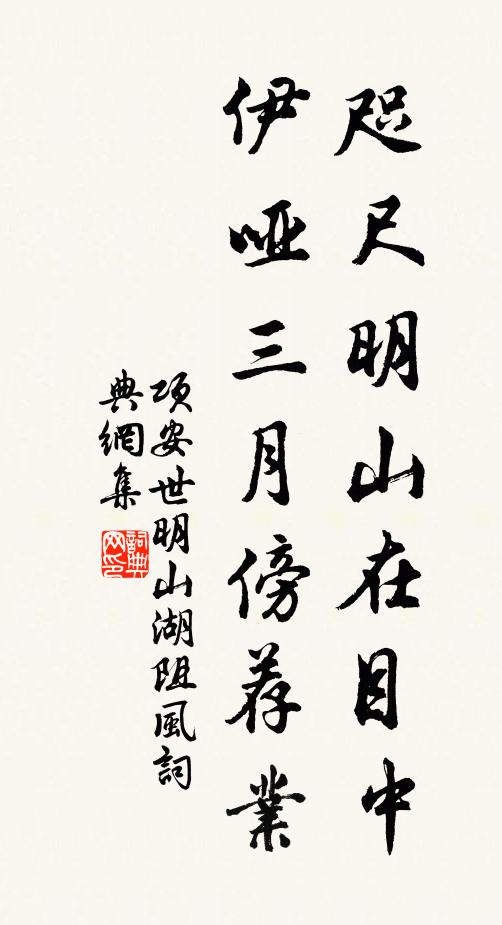 咫尺明山在目中
伊哑三月傍荐業
項安世明山湖阻風詞
典網集
詞典
网印